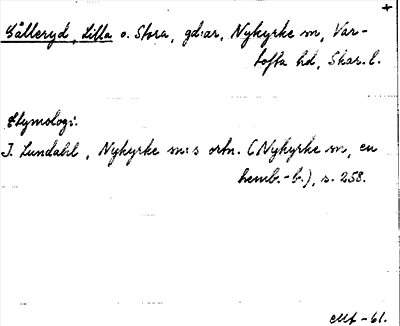 +
Gålleryd, Lilla o. Stora, gd:ar, Nykyrke sn, Var-
tofta hd, Skar. l.
Etymologi:
I. Lundahl, Nykyrke sn:s ortn. (Nykyrke sn, en
hemb.-b.), s. 258.
-61.